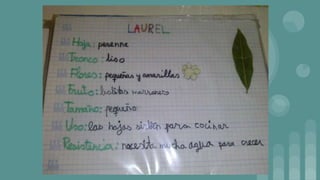 LAUREL
Hoja: perenne
Tronco: liso
Flores: pequeñas y amarillas
Fruto: bolitas marrones
Tamaño: pequeño
Uso: las hojas sirven para cocinar
Resistencia: necesita mucha agua para crecer